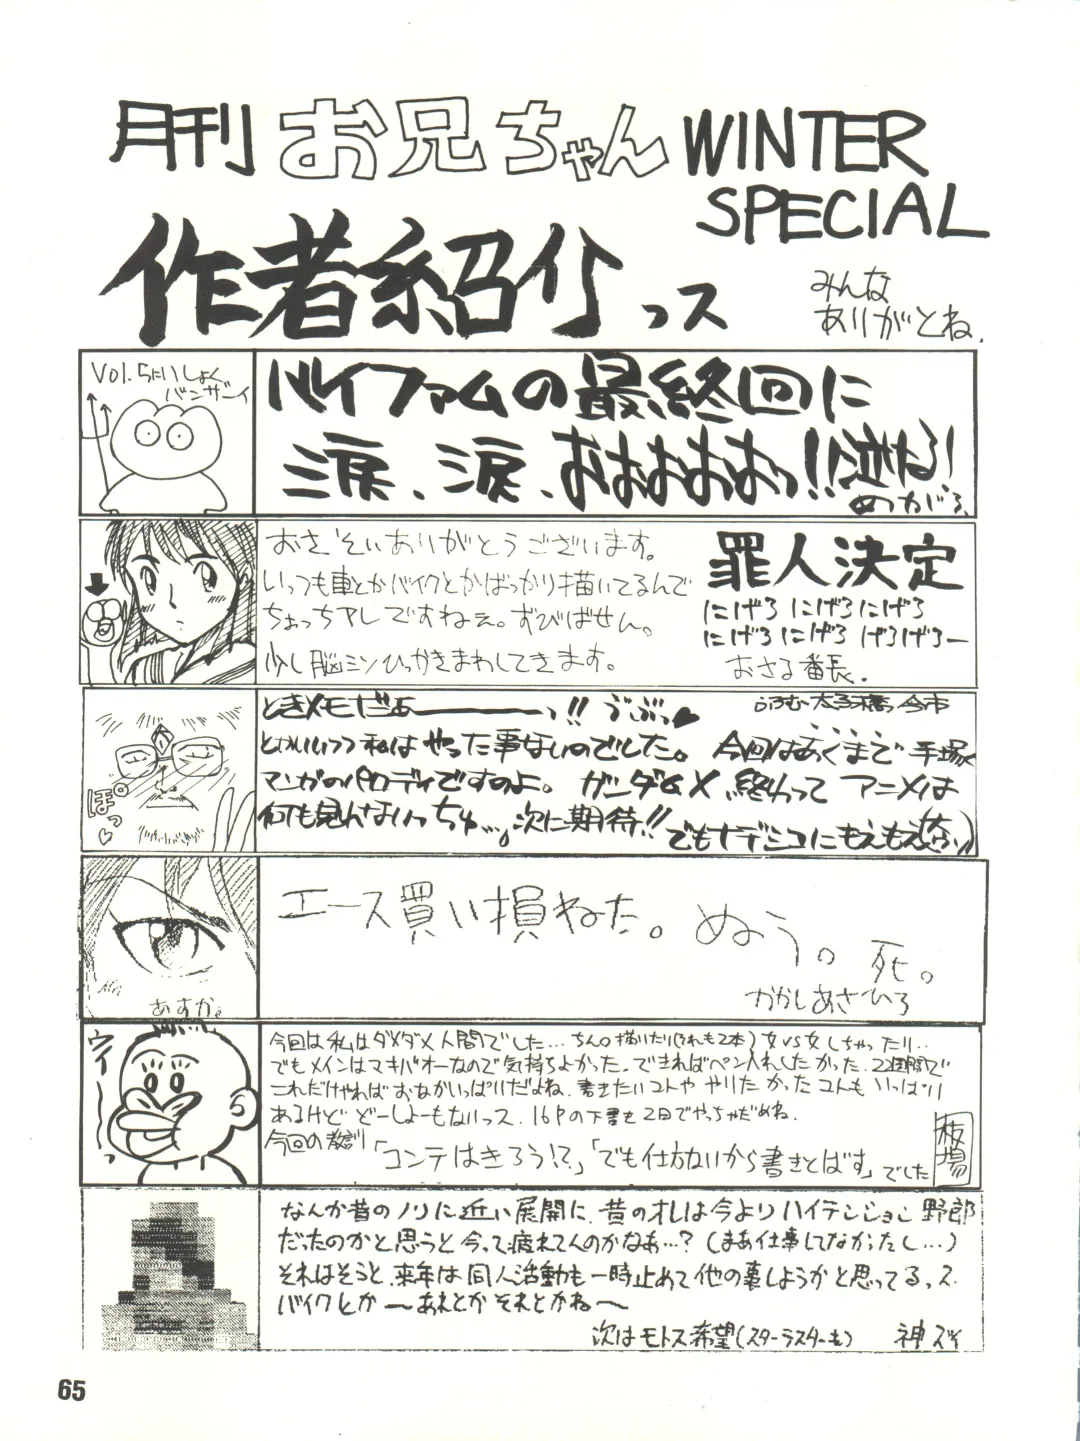 月刊 お兄ちゃん WINTER SPECIAL
作者紹介っス
みんな
ありがとね.
Vol.5にいしょく
バンザーイ
バイファムの最終回に
涙、涙、おおおおおっ!!逆だろ!
めつがろ
おさそいありがとうございます。
いっつも車とかバイクとかばっかり描いてるんで
ちょっちアレですねえ。ずびばせん。
少し脳ミソひっかきまわしてきます。
罪人決定
にげろ にげろ にげろ
にげろ にげろ げろげろー
おさる番長.
ぽっ♡
ときメモだぁーーーっ!! うぶっ♥
太子橋今市
とかいいつつ私はやった事ないのでした。 今回はあくまで手塚
マンガのパロディですのよ。 ガンダムX 終わって アニメは
何も見んないっちゅ…。次に期待!!
でもナデシコにもえもえ
あすか。
エース買い損ねた。ぬぅう。死。
かかしあさひろ
ウイーっ
今回は私はダメダメ人間でした… ちん〇描いたり(それも2本)女VS女しちゃったり‥
でもメインはマキバオーなので気持ちよかった。できればペン入れしたかった. 2週間で
これだけやればおなかいっぱいだよね. 書きたいコトや やりたかったコトも いっぱい
あるけど どーしよーもないっス. 16Pの下書を2日でやっちゃだめね.
今回の教訓「コンテはきろう!?」「でも仕方ないから書きとばす」でした
板場
なんか昔のノリに近い展開に、昔のオレは今よりハイテンション野郎
だったのかと思うと今って疲れてんのかなあ…?(まあ仕事してなかったし…)
それはそうと、来年は同人活動も一時止めて他の事しようかと思ってるっス
バイクとか〜あれとかそれとかね〜
次はモトス希望(スターラスターも)
65